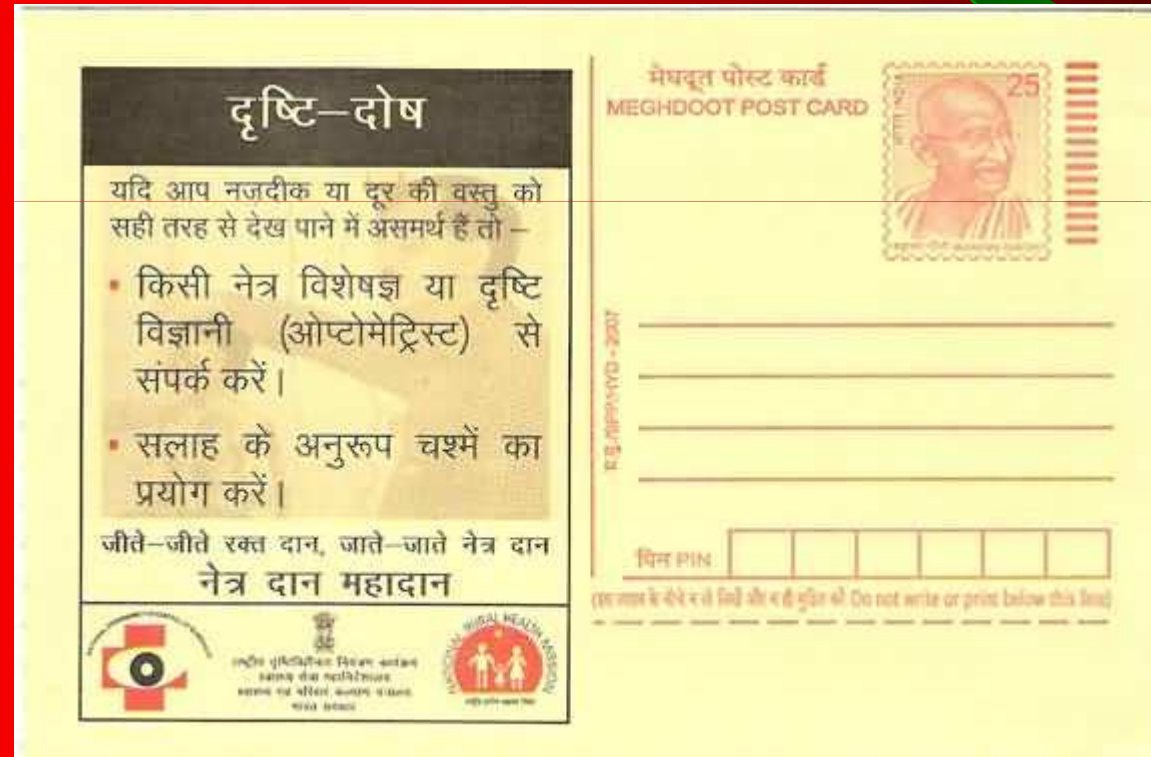 दृष्टि–दोष
यदि आप नजदीक या दूर की वस्तु को
सही तरह से देख पाने में असमर्थ हैं तो –
• किसी नेत्र विशेषज्ञ या दृष्टि
विज्ञानी (ओप्टोमेट्रिस्ट) से
संपर्क करें।
• सलाह के अनुरूप चश्में का
प्रयोग करें।
जीते–जीते रक्त दान, जाते–जाते नेत्र दान
नेत्र दान महादान
राष्ट्रीय दृष्टिविहीनता नियंत्रण कार्यक्रम
स्वास्थ्य सेवा महानिदेशालय
स्वास्थ्य एवं परिवार कल्याण मंत्रालय
भारत सरकार
NATIONAL RURAL HEALTH MISSION
मेघदूत पोस्ट कार्ड
MEGHDOOT POST CARD
25
भारत INDIA
2007
पिन PIN
Do not write or print below this line)